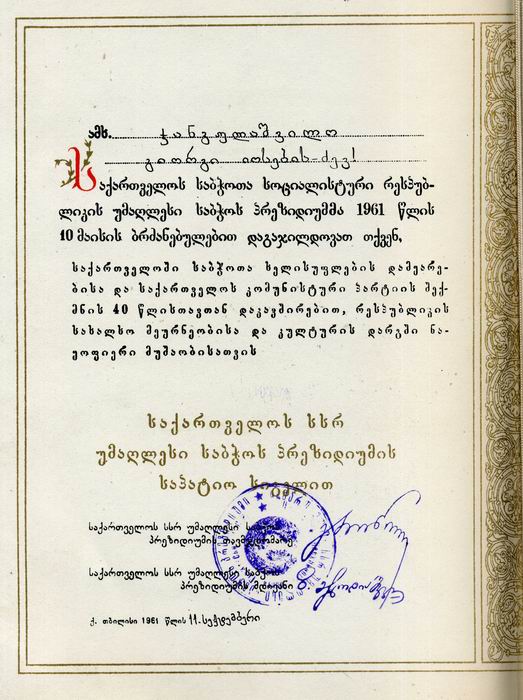 ამხ. ჯანგულაშვილო
გიორგი იოსების-ძევ!
საქართველოს საბჭოთა სოციალისტური რესპუბ-
ლიკის უმაღლესი საბჭოს პრეზიდიუმმა 1961 წლის
10 მაისის ბრძანებულებით დაგაჯილდოვათ თქვენ,
საქართველოში საბჭოთა ხელისუფლების დამყარე-
ბისა და საქართველოს კომუნისტური პარტიის შექ-
მნის 40 წლისთავთან დაკავშირებით, რესპუბლიკის
სახალხო მეურნეობისა და კულტურის დარგში ნა-
ყოფიერი მუშაობისათვის
საქართველოს სსრ
უმაღლესი საბჭოს პრეზიდიუმის
საპატიო სიგელით
საქართველოს სსრ უმაღლესი საბჭოს
პრეზიდიუმის თავმჯდომარე
საქართველოს სსრ უმაღლესი საბჭოს
პრეზიდიუმის მდივანი
ქ. თბილისი 1961 წლის 11. სექტემბერი